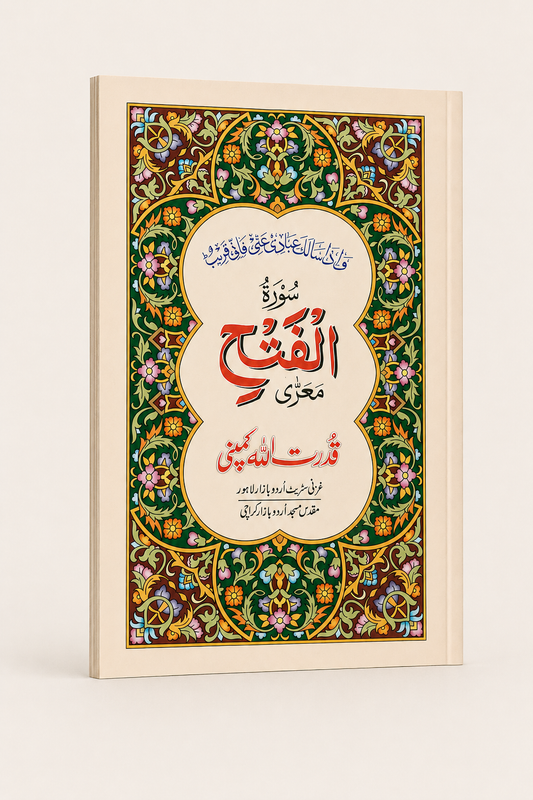 وَاِذَا سَاَلَكَ عِبَادِیْ عَنِّیْ فَاِنِّیْ قَرِیْبٌ ؕ
سُوْرَةُ
الْفَتْحِ
مَعَرّٰی
قُدرت اللہ کمپنی
غزنی سٹریٹ اُردو بازار لاہور
مقدس مسجد اُردو بازار کراچی